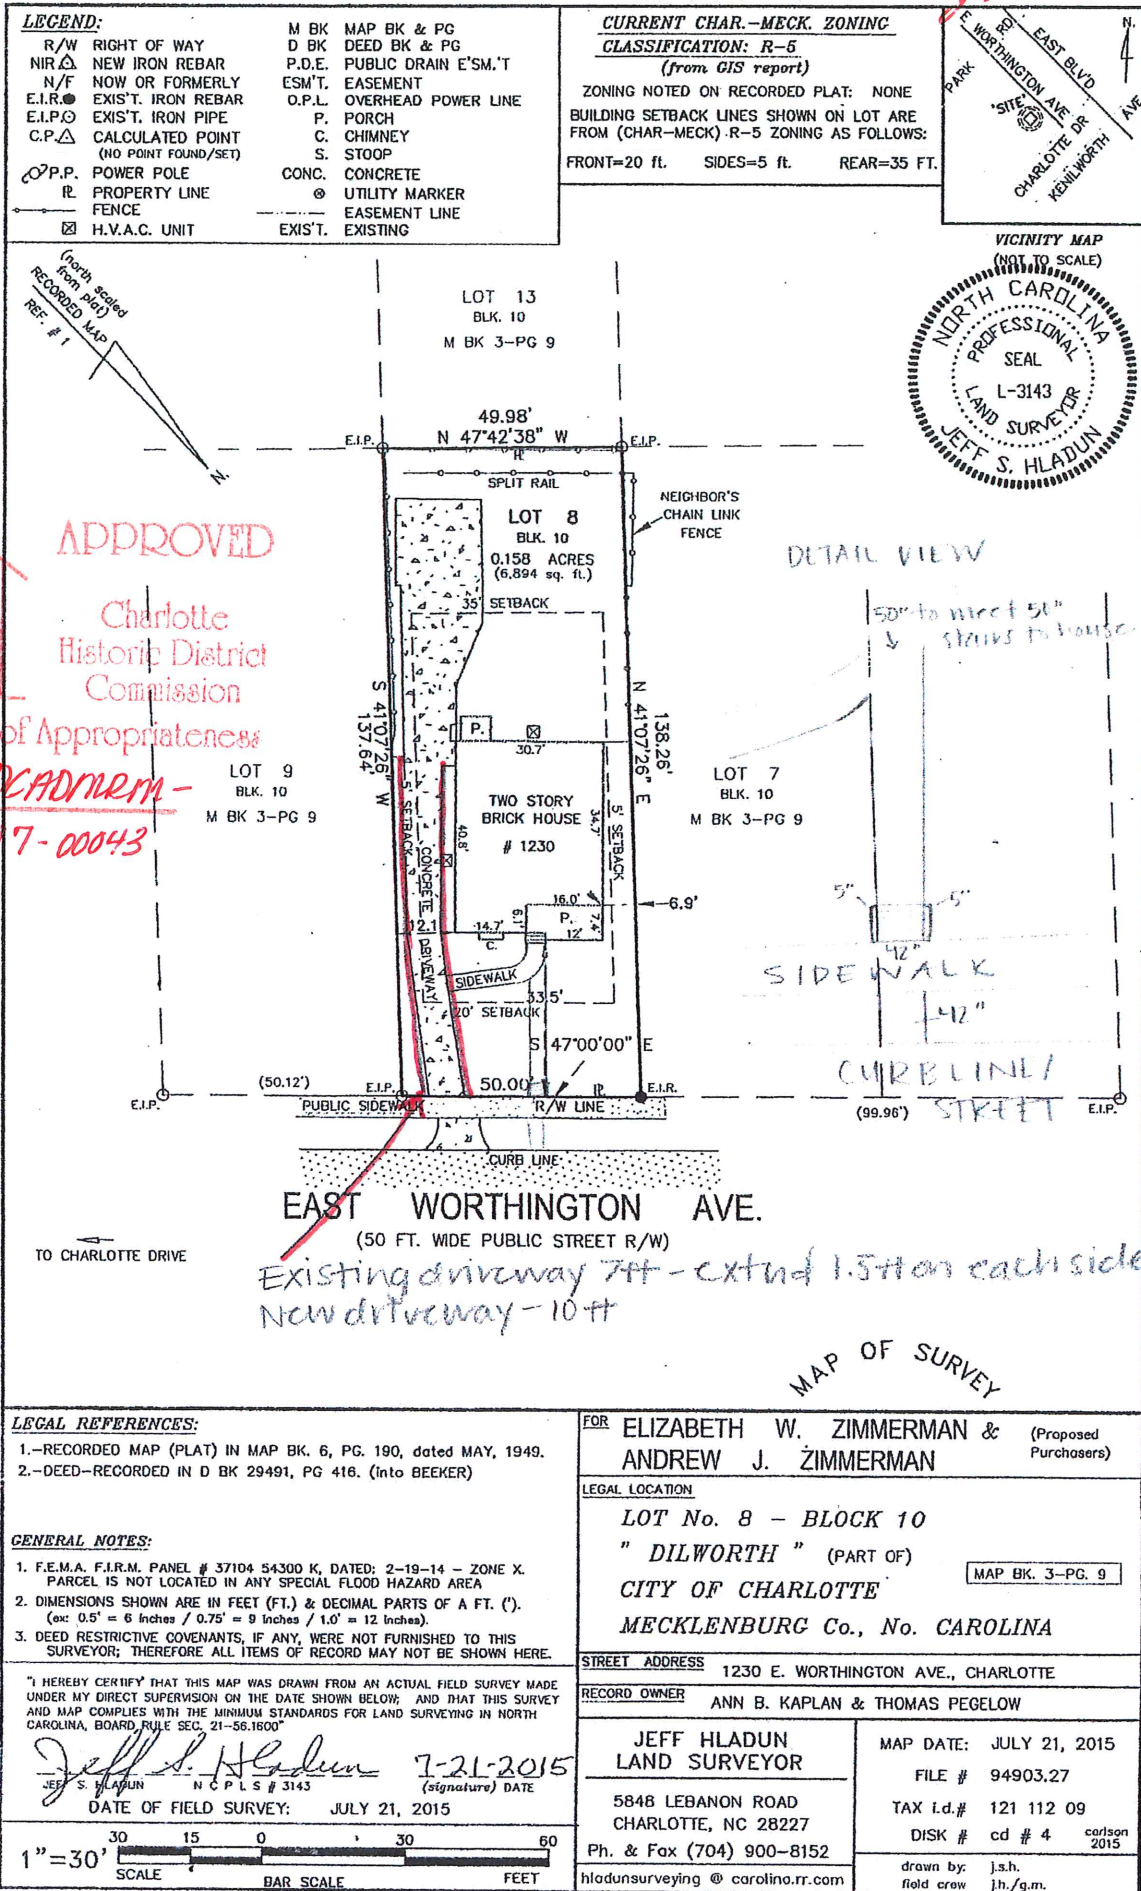 LEGEND:
R/W RIGHT OF WAY
NIR NEW IRON REBAR
N/F NOW OR FORMERLY
E.I.R. EXIS'T. IRON REBAR
E.I.P. EXIS'T. IRON PIPE
C.P. CALCULATED POINT
(NO POINT FOUND/SET)
P.P. POWER POLE
PL PROPERTY LINE
FENCE
H.V.A.C. UNIT
M BK MAP BK & PG
D BK DEED BK & PG
P.D.E. PUBLIC DRAIN E'SM.'T
ESM'T. EASEMENT
O.P.L. OVERHEAD POWER LINE
P. PORCH
C. CHIMNEY
S. STOOP
CONC. CONCRETE
⊗ UTILITY MARKER
EASEMENT LINE
EXIS'T. EXISTING
CURRENT CHAR.-MECK. ZONING
CLASSIFICATION: R-5
(from GIS report)
ZONING NOTED ON RECORDED PLAT: NONE
BUILDING SETBACK LINES SHOWN ON LOT ARE
FROM (CHAR-MECK) R-5 ZONING AS FOLLOWS:
FRONT=20 ft. SIDES=5 ft. REAR=35 FT.
N.
PARK
RD.
E WORTHINGTON AVE
EAST BLV'D
'SITE'
CHARLOTTE DR
KENILWORTH
AVE
VICINITY MAP
(NOT TO SCALE)
NORTH CAROLINA
PROFESSIONAL
SEAL
L-3143
LAND SURVEYOR
JEFF S. HLADUN
(north scaled
from plat)
RECORDED MAP
REF. # 1
N.
LOT 13
BLK. 10
M BK 3-PG 9
49.98'
N 47°42'38" W
E.I.P.
E.I.P.
PL
SPLIT RAIL
NEIGHBOR'S
CHAIN LINK
FENCE
LOT 8
BLK. 10
0.158 ACRES
(6,894 sq. ft.)
35' SETBACK
APPROVED
Charlotte
Historic District
Commission
of Appropriateness
CADMRM-
7-00043
DETAIL VIEW
50" to meet 50"
stairs to house
S 41°07'26" W
137.64'
N 41°07'26" E
138.26'
P.
30.7'
LOT 9
BLK. 10
M BK 3-PG 9
TWO STORY
BRICK HOUSE
# 1230
40.8'
34.7'
5' SETBACK
5' SETBACK
LOT 7
BLK. 10
M BK 3-PG 9
CONCRETE DRIVEWAY
12.1
14.7'
C.
6.1'
16.0'
P.
12'
7.4'
6.9'
SIDEWALK
33.5'
20' SETBACK
5" 5"
42"
SIDEWALK
42"
CURBLINE/
STREET
S 47°00'00" E
(50.12')
E.I.P.
E.I.P.
50.00'
PL
E.I.R.
(99.96')
E.I.P.
PUBLIC SIDEWALK
R/W LINE
CURB LINE
EAST WORTHINGTON AVE.
(50 FT. WIDE PUBLIC STREET R/W)
TO CHARLOTTE DRIVE
Existing driveway 7ft - extend 1.5ft on each side
New driveway - 10 ft
MAP OF SURVEY
LEGAL REFERENCES:
1.-RECORDED MAP (PLAT) IN MAP BK. 6, PG. 190, dated MAY, 1949.
2.-DEED-RECORDED IN D BK 29491, PG 416. (into BEEKER)
GENERAL NOTES:
1. F.E.M.A. F.I.R.M. PANEL # 37104 54300 K, DATED: 2-19-14 - ZONE X.
PARCEL IS NOT LOCATED IN ANY SPECIAL FLOOD HAZARD AREA
2. DIMENSIONS SHOWN ARE IN FEET (FT.) & DECIMAL PARTS OF A FT. (').
(ex: 0.5' = 6 inches / 0.75' = 9 inches / 1.0' = 12 inches).
3. DEED RESTRICTIVE COVENANTS, IF ANY, WERE NOT FURNISHED TO THIS
SURVEYOR; THEREFORE ALL ITEMS OF RECORD MAY NOT BE SHOWN HERE.
"I HEREBY CERTIFY THAT THIS MAP WAS DRAWN FROM AN ACTUAL FIELD SURVEY MADE
UNDER MY DIRECT SUPERVISION ON THE DATE SHOWN BELOW; AND THAT THIS SURVEY
AND MAP COMPLIES WITH THE MINIMUM STANDARDS FOR LAND SURVEYING IN NORTH
CAROLINA, BOARD RULE SEC. 21-56.1600"
Jeff S. Hladun 7-21-2015
JEFF S. HLADUN N C P L S # 3143 (signature) DATE
DATE OF FIELD SURVEY: JULY 21, 2015
1"=30'
30 15 0 30 60
SCALE BAR SCALE FEET
FOR ELIZABETH W. ZIMMERMAN & (Proposed
ANDREW J. ZIMMERMAN Purchasers)
LEGAL LOCATION
LOT No. 8 - BLOCK 10
" DILWORTH " (PART OF)
MAP BK. 3-PG. 9
CITY OF CHARLOTTE
MECKLENBURG Co., No. CAROLINA
STREET ADDRESS 1230 E. WORTHINGTON AVE., CHARLOTTE
RECORD OWNER ANN B. KAPLAN & THOMAS PEGELOW
JEFF HLADUN
LAND SURVEYOR
5848 LEBANON ROAD
CHARLOTTE, NC 28227
Ph. & Fax (704) 900-8152
hladunsurveying @ carolina.rr.com
MAP DATE: JULY 21, 2015
FILE # 94903.27
TAX i.d.# 121 112 09
DISK # cd # 4 carlson
2015
drawn by: j.s.h.
field crew j.h./q.m.